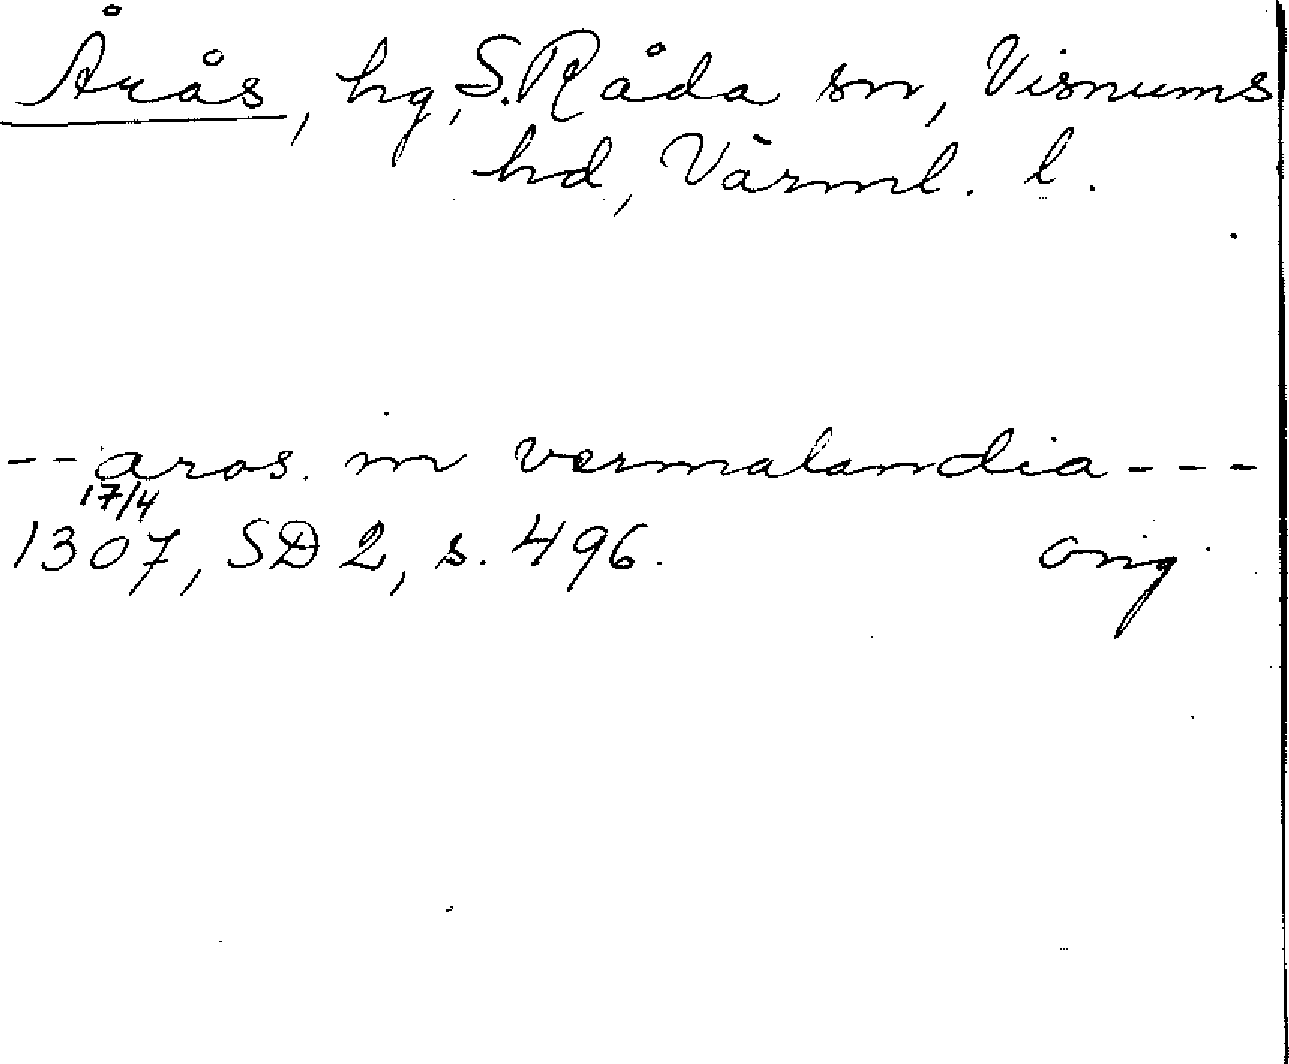 Årås, hg, S. Råda sn, Visnums
hd, Värml. l.
-- aros. in vermalandia ---
17/4
1307, SD 2, s. 496. orig.